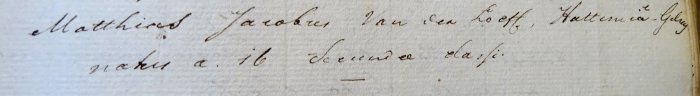 Matthias Jacobus Van der Loeff, Hattemiâ-Gelrus
natus a. 16 secundae classi.